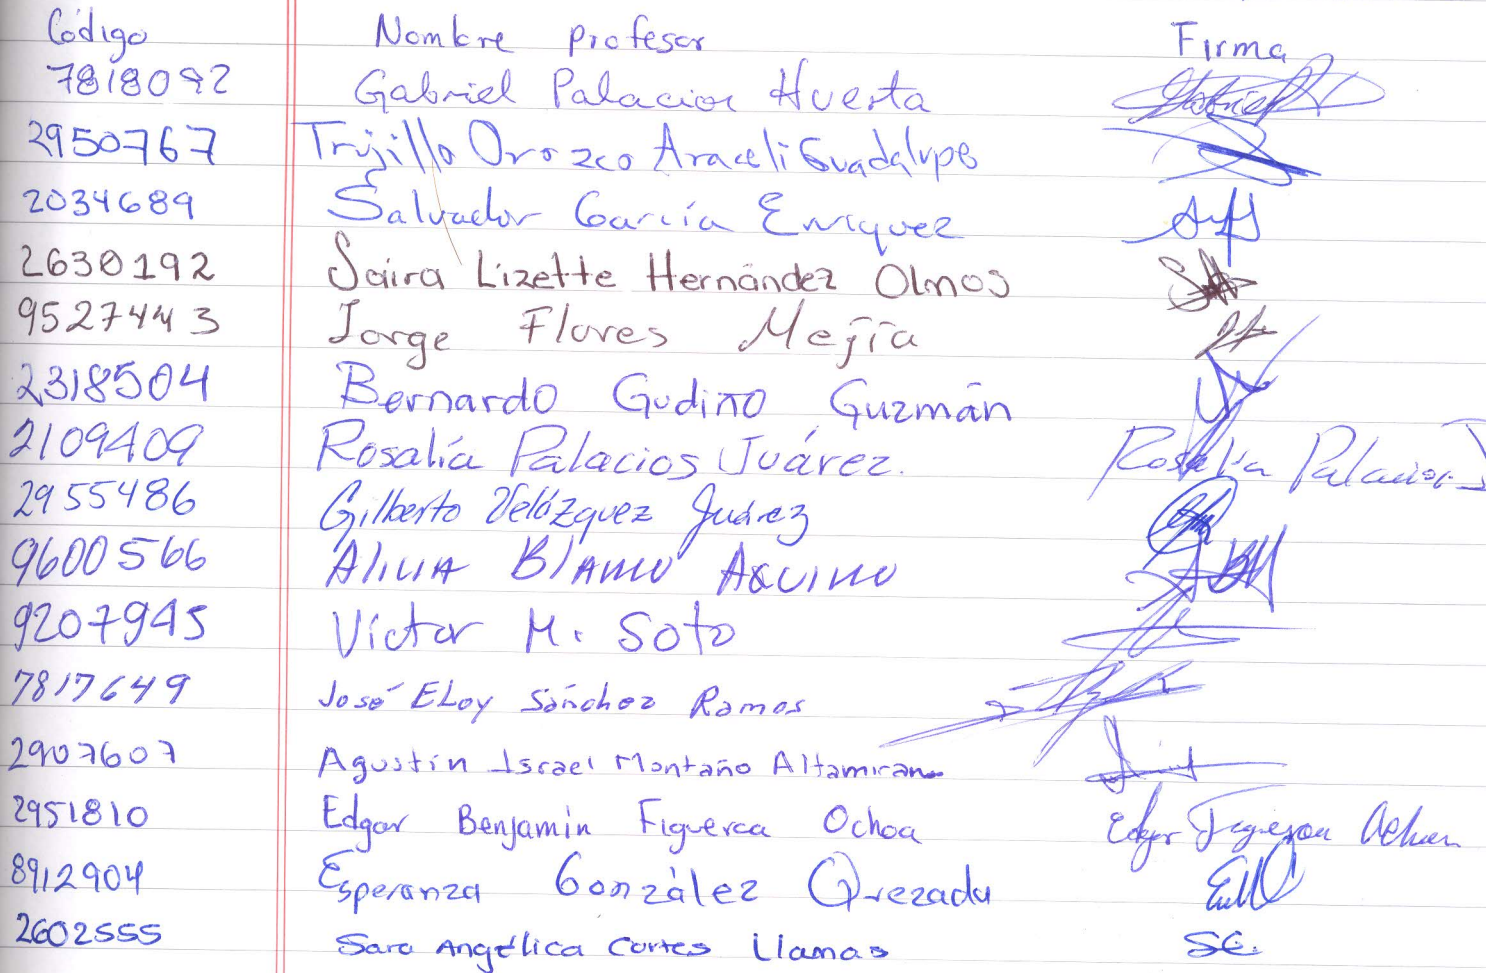 Código Nombre profesor Firma
7818092 Gabriel Palacios Huerta Gabriel
2950767 Trujillo Orozco Araceli Guadalupe
2034689 Salvador García Enriquez
2630192 Saira Lizette Hernández Olmos
9527443 Jorge Flores Mejía
2318504 Bernardo Gudiño Guzmán
2109409 Rosalía Palacios Juárez. Rosalía Palacios J
2955486 Gilberto Velázquez Juárez
9600566 Alicia Blanco Aquino
9207945 Víctor M. Soto
7817649 José Eloy Sánchez Ramos
2907607 Agustín Israel Montaño Altamirano
2951810 Edgar Benjamin Figueroa Ochoa Edgar Figueroa Ochoa
8912904 Esperanza González Quezada
2602555 Sara Angélica Cortes Llamas SC.